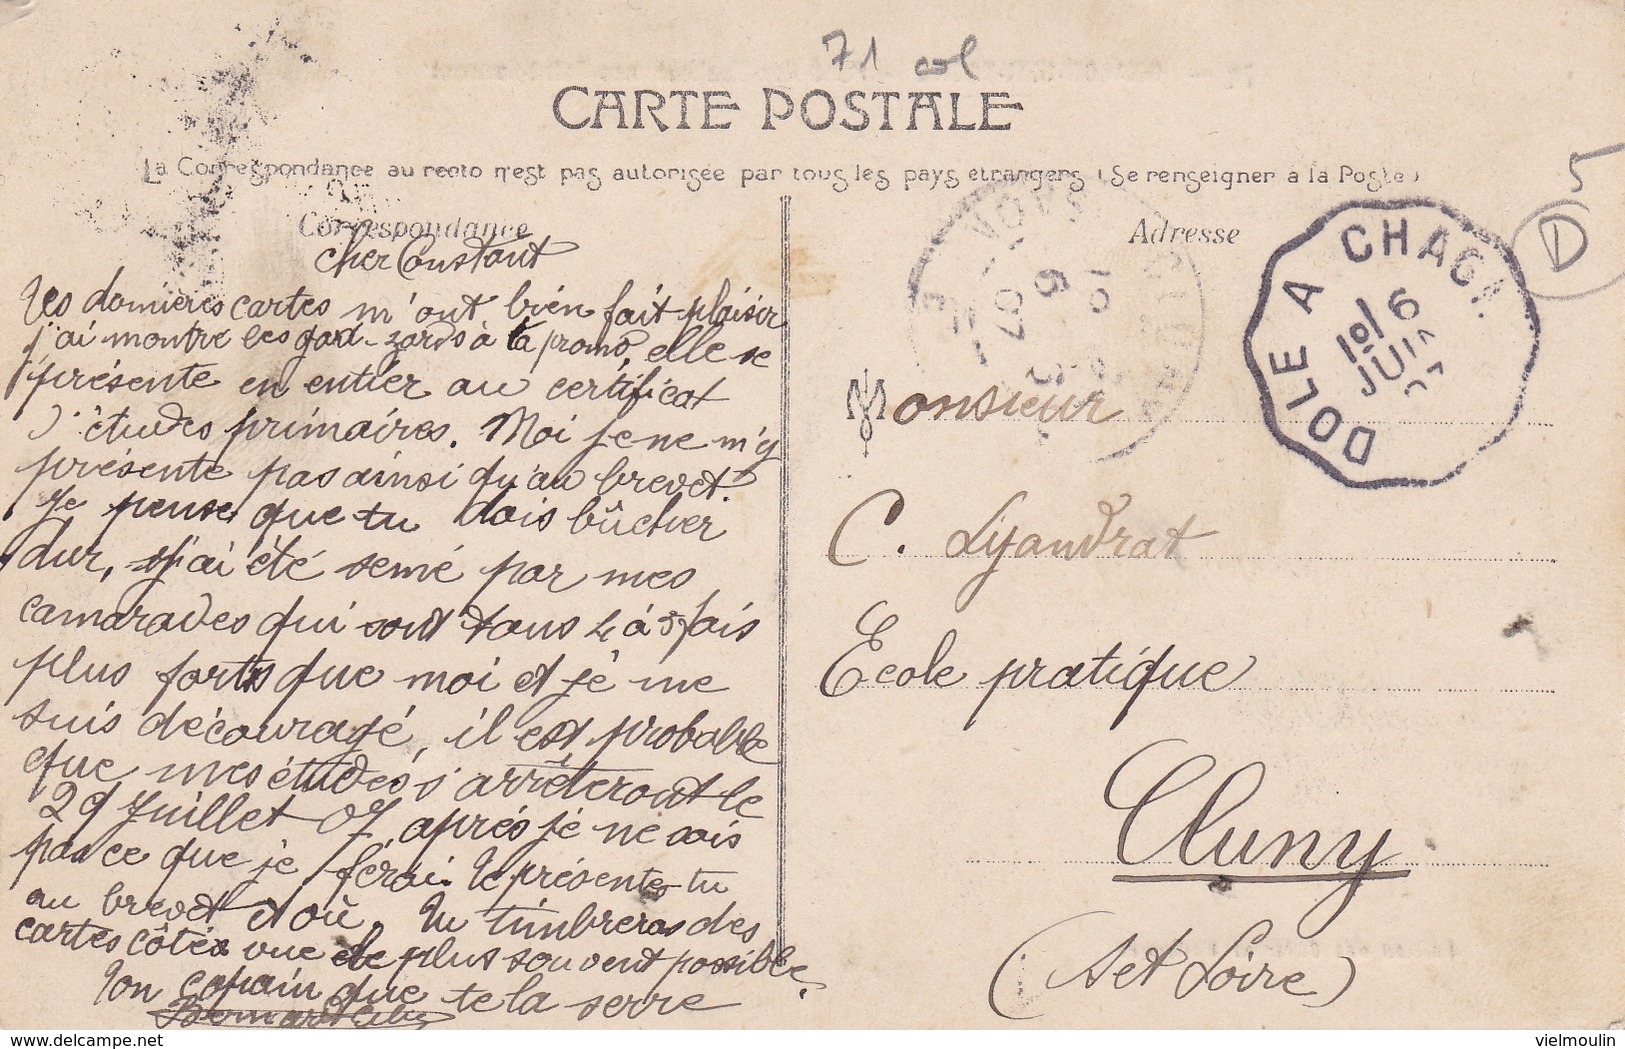 71 col
CARTE POSTALE
La Correspondance au recto n'est pas autorisée par tous les pays étrangers (Se renseigner à la Poste)
Correspondance
Adresse
5
D
DOLE A CHAGN
6
JUIN
07
cher Constant
Tes dernières cartes m'ont bien fait plaisir
j'ai montré les gad-zards à ta promo, elle se
présente en entier au certificat
d'études primaires. Moi je ne m'y
présente pas ainsi qu'au brevet.
Je pense que tu dois bûcher
dur, j'ai été semé par mes
camarades qui sont tous 4 à 5 fois
plus forts que moi et je me
suis découragé, il est probable
que mes études s'arrêteront le
29 Juillet 07, après je ne sais
pas ce que je ferai. Te présentes tu
au brevet et où. Tu timbreras des
cartes côté vue le plus souvent possible.
Ton copain que te la serre
Monsieur
C. Lyandrat
Ecole pratique
Cluny
(S et Loire)
delcampe.net
vielmoulin